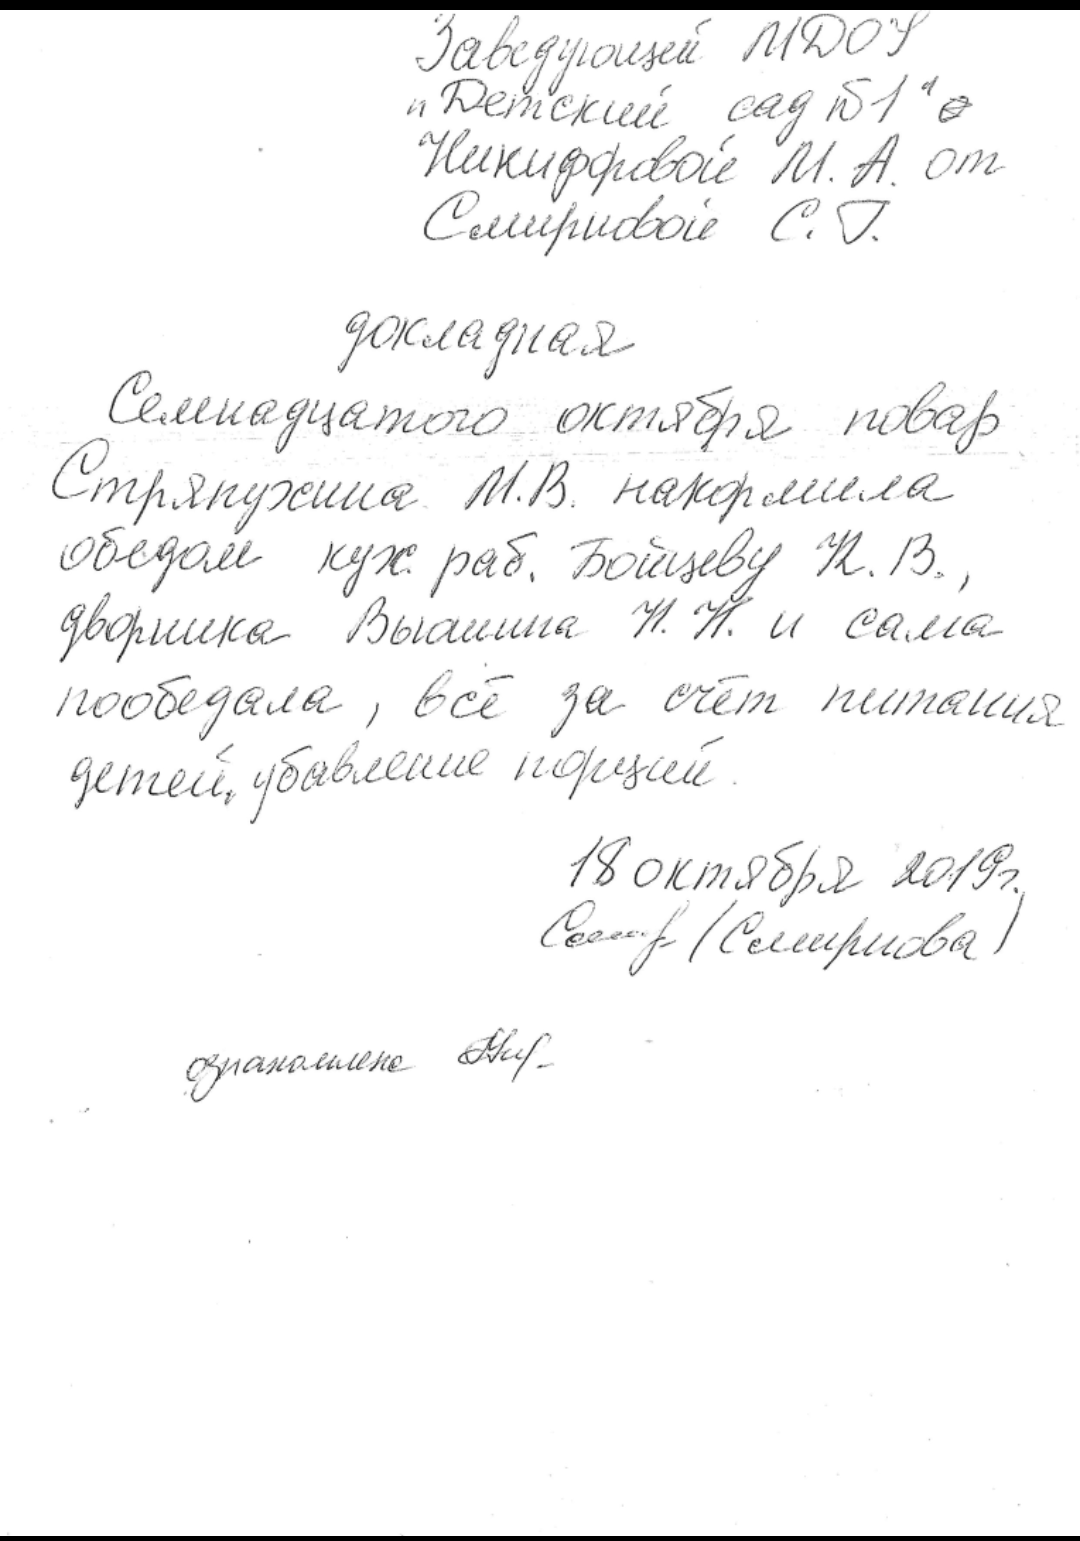 Заведующей МДОУ
"Детский сад №1"
Никифоровой М. А. от
Смирновой С. Г.
докладная
Семнадцатого октября повар
Стряпухина М.В. накормила
обедом кух. раб. Бойцеву К. В.,
дворника Вьюшина Н. Н. и сама
пообедала, всё за счёт питания
детей, убавление порций.
18 октября 2019г.
(Смирнова)
ознакомлена